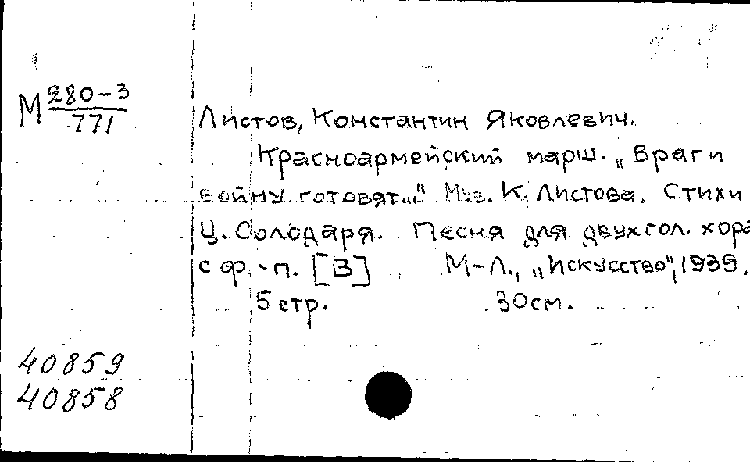 М 280-3
771
Листов, Константин Яковлевич.
Красноармейский марш. „Враги
войну готовят..." Муз. К. Листова. Стихи
Ц. Солодаря. Песня для двухгол. хора
с ф.-п. [В] М-Л., „Искусство", 1939.
5 стр. 30 см.
40859
40858